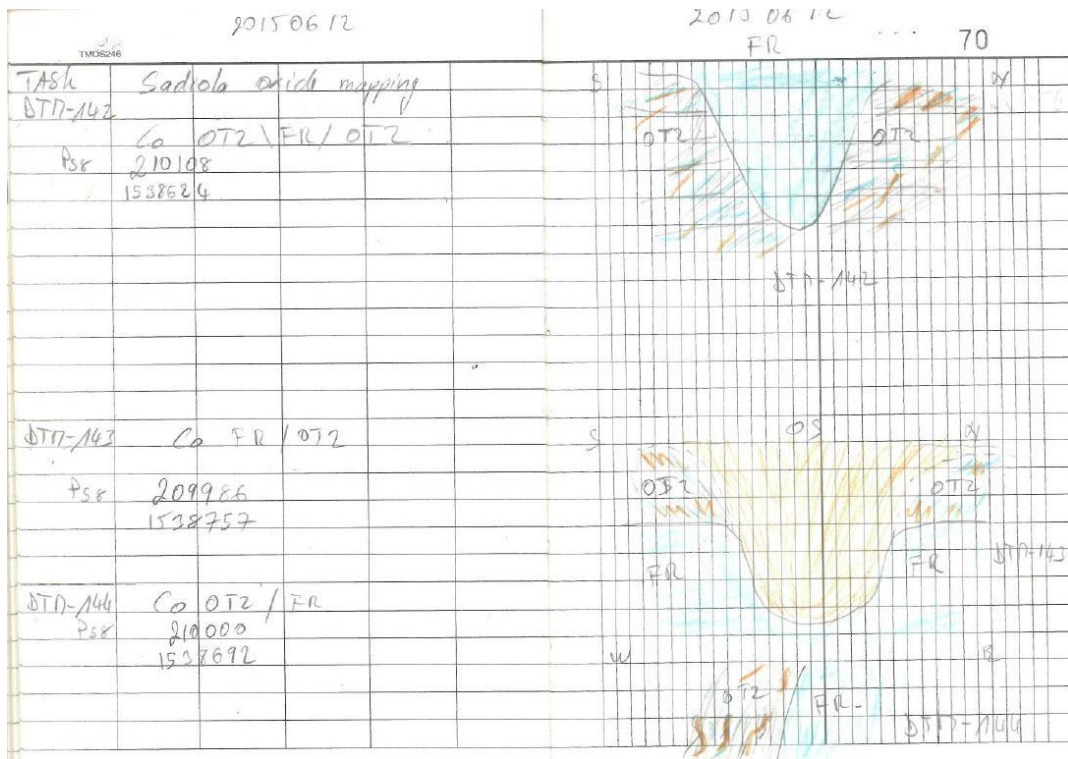 20150612
TMOS246
TASK Sadiola oxide mapping
DTM-142
Co OT2 \ FR / OT2
Ps8 210108
1538624
DTM-143 Co FR / OT2
Ps8 209986
1538757
DTM-144 Co OT2 / FR
Ps8 210000
1538692
20150612
FR 70
S N
OT2 OT2
DTM-142
S OS N
OT2 OT2
FR FR DTM-143
W E
OT2 FR
DTM-144